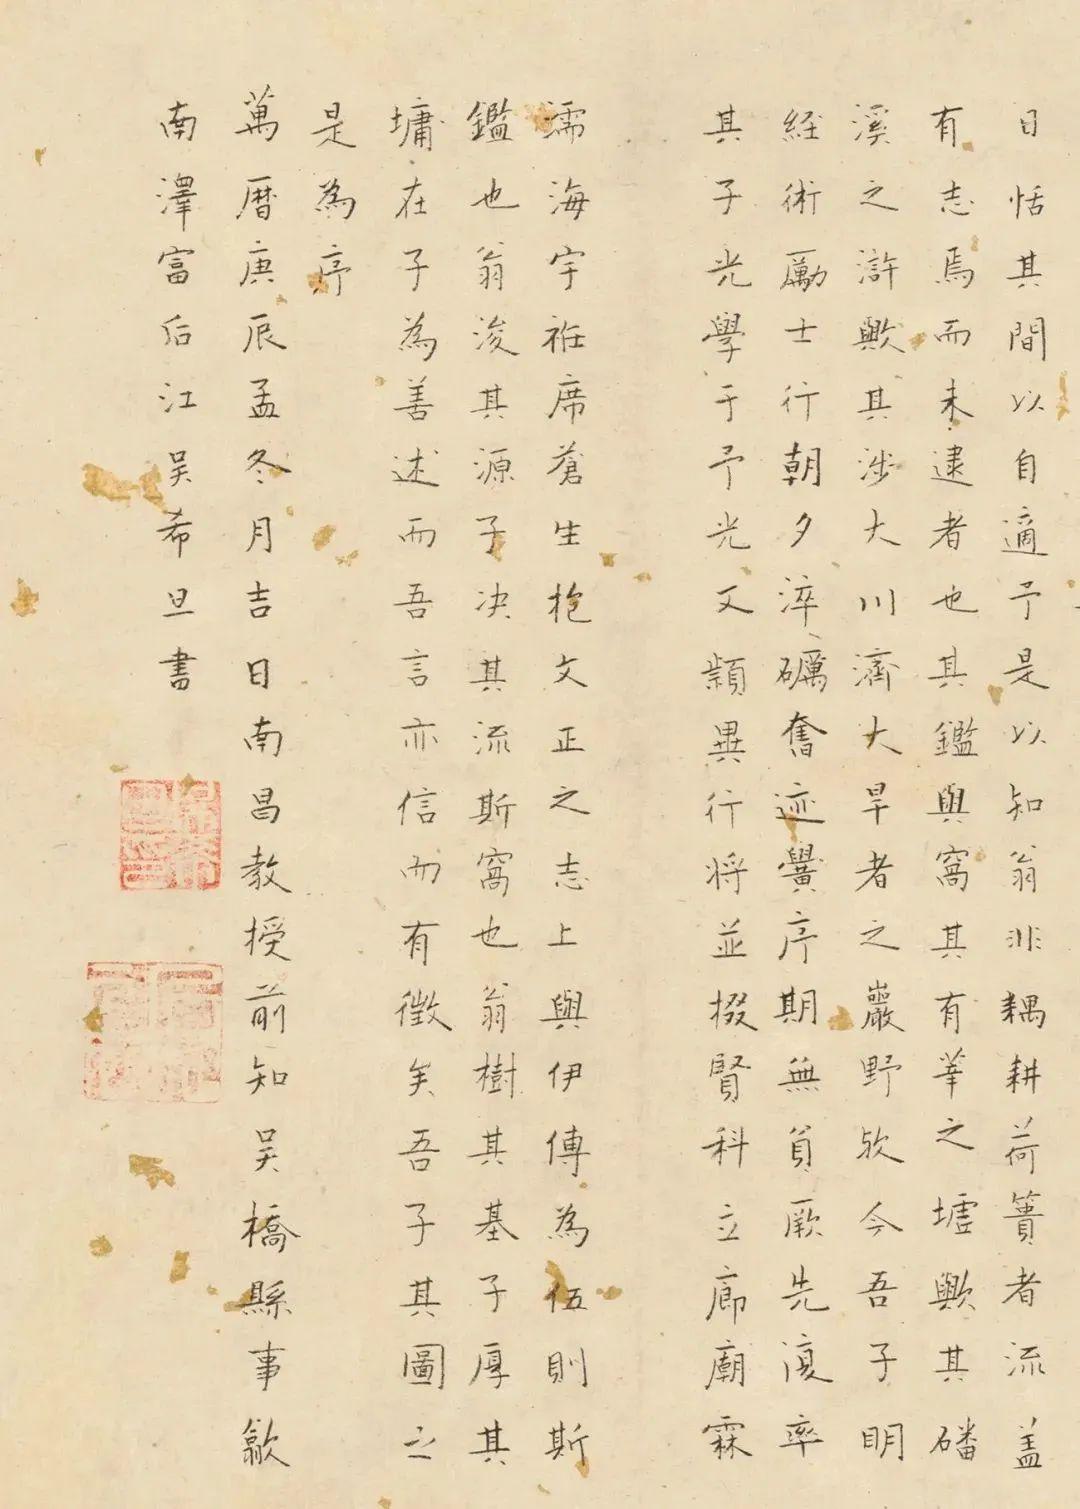 日恬其間以自適于是以知翁非耦耕荷蕢者流盖
有志焉而未逮者也其鑑與窩其有莘之墟歟其磻
溪之滸歟其涉大川濟大旱者之巖野欤今吾子明
經術勵士行朝夕淬礪奮迹黌序期無負厥先復率
其子光學于予光文穎異行将並掇賢科立廊廟霖
濡海宇袵席蒼生抱文正之志上與伊傅為伍則斯
鑑也翁浚其源子决其流斯窩也翁樹其基子厚其
墉在子為善述而吾言亦信而有徵矣吾子其圖之
是為序
萬曆庚辰孟冬月吉日南昌教授前知吴橋縣事歙
南澤富后江吴希旦書